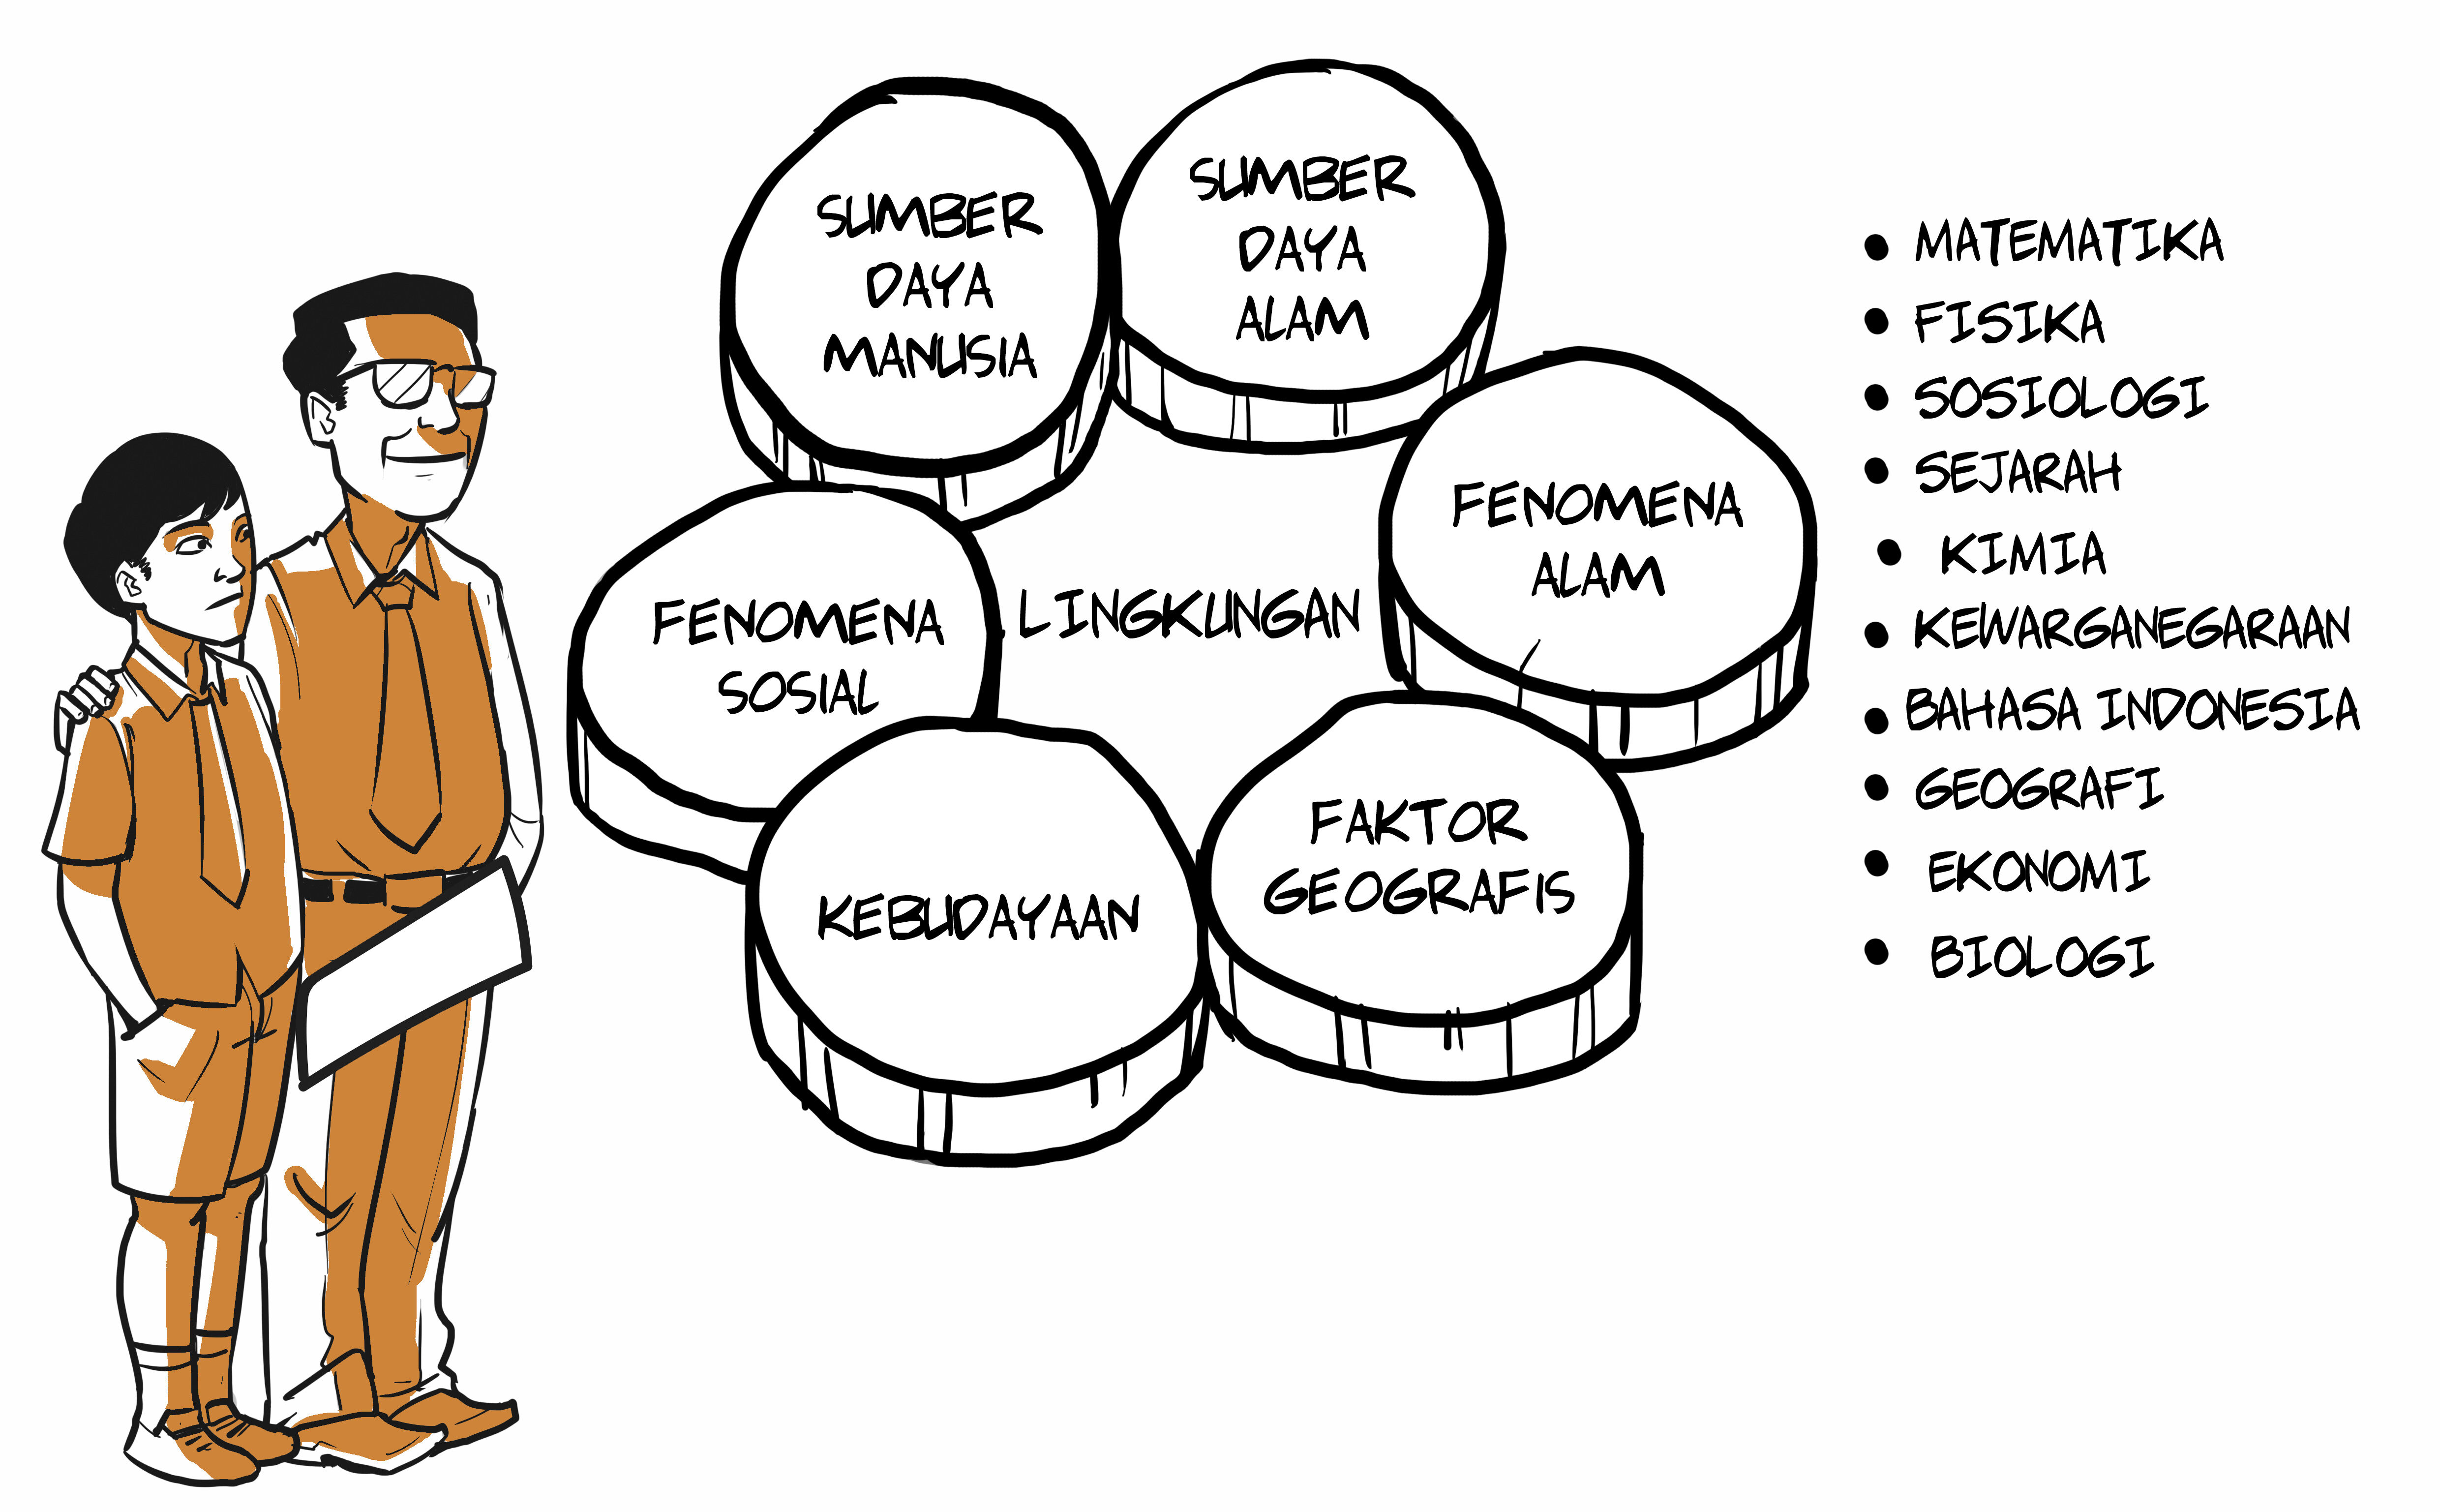 SUMBER
DAYA
MANUSIA
SUMBER
DAYA
ALAM
FENOMENA
ALAM
FENOMENA
SOSIAL
LINGKUNGAN
KEBUDAYAAN
FAKTOR
GEOGRAFIS
• MATEMATIKA
• FISIKA
• SOSIOLOGI
• SEJARAH
• KIMIA
• KEWARGANEGARAAN
• BAHASA INDONESIA
• GEOGRAFI
• EKONOMI
• BIOLOGI